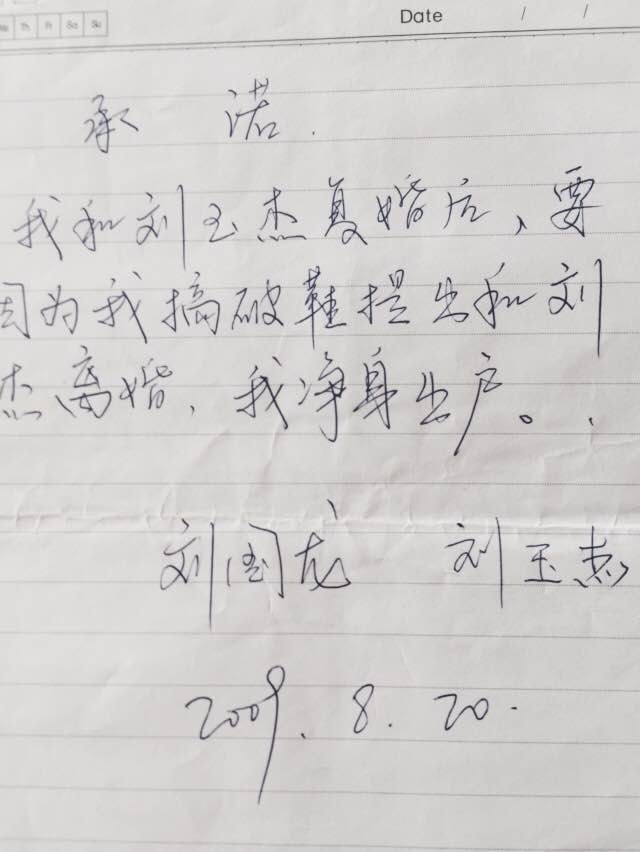 We Th Fr Sa Su
Date / /
承 诺.
我和刘玉杰复婚后、要
因为我搞破鞋提出和刘
杰离婚、我净身出户。
刘国龙 刘玉杰
2009. 8. 20.